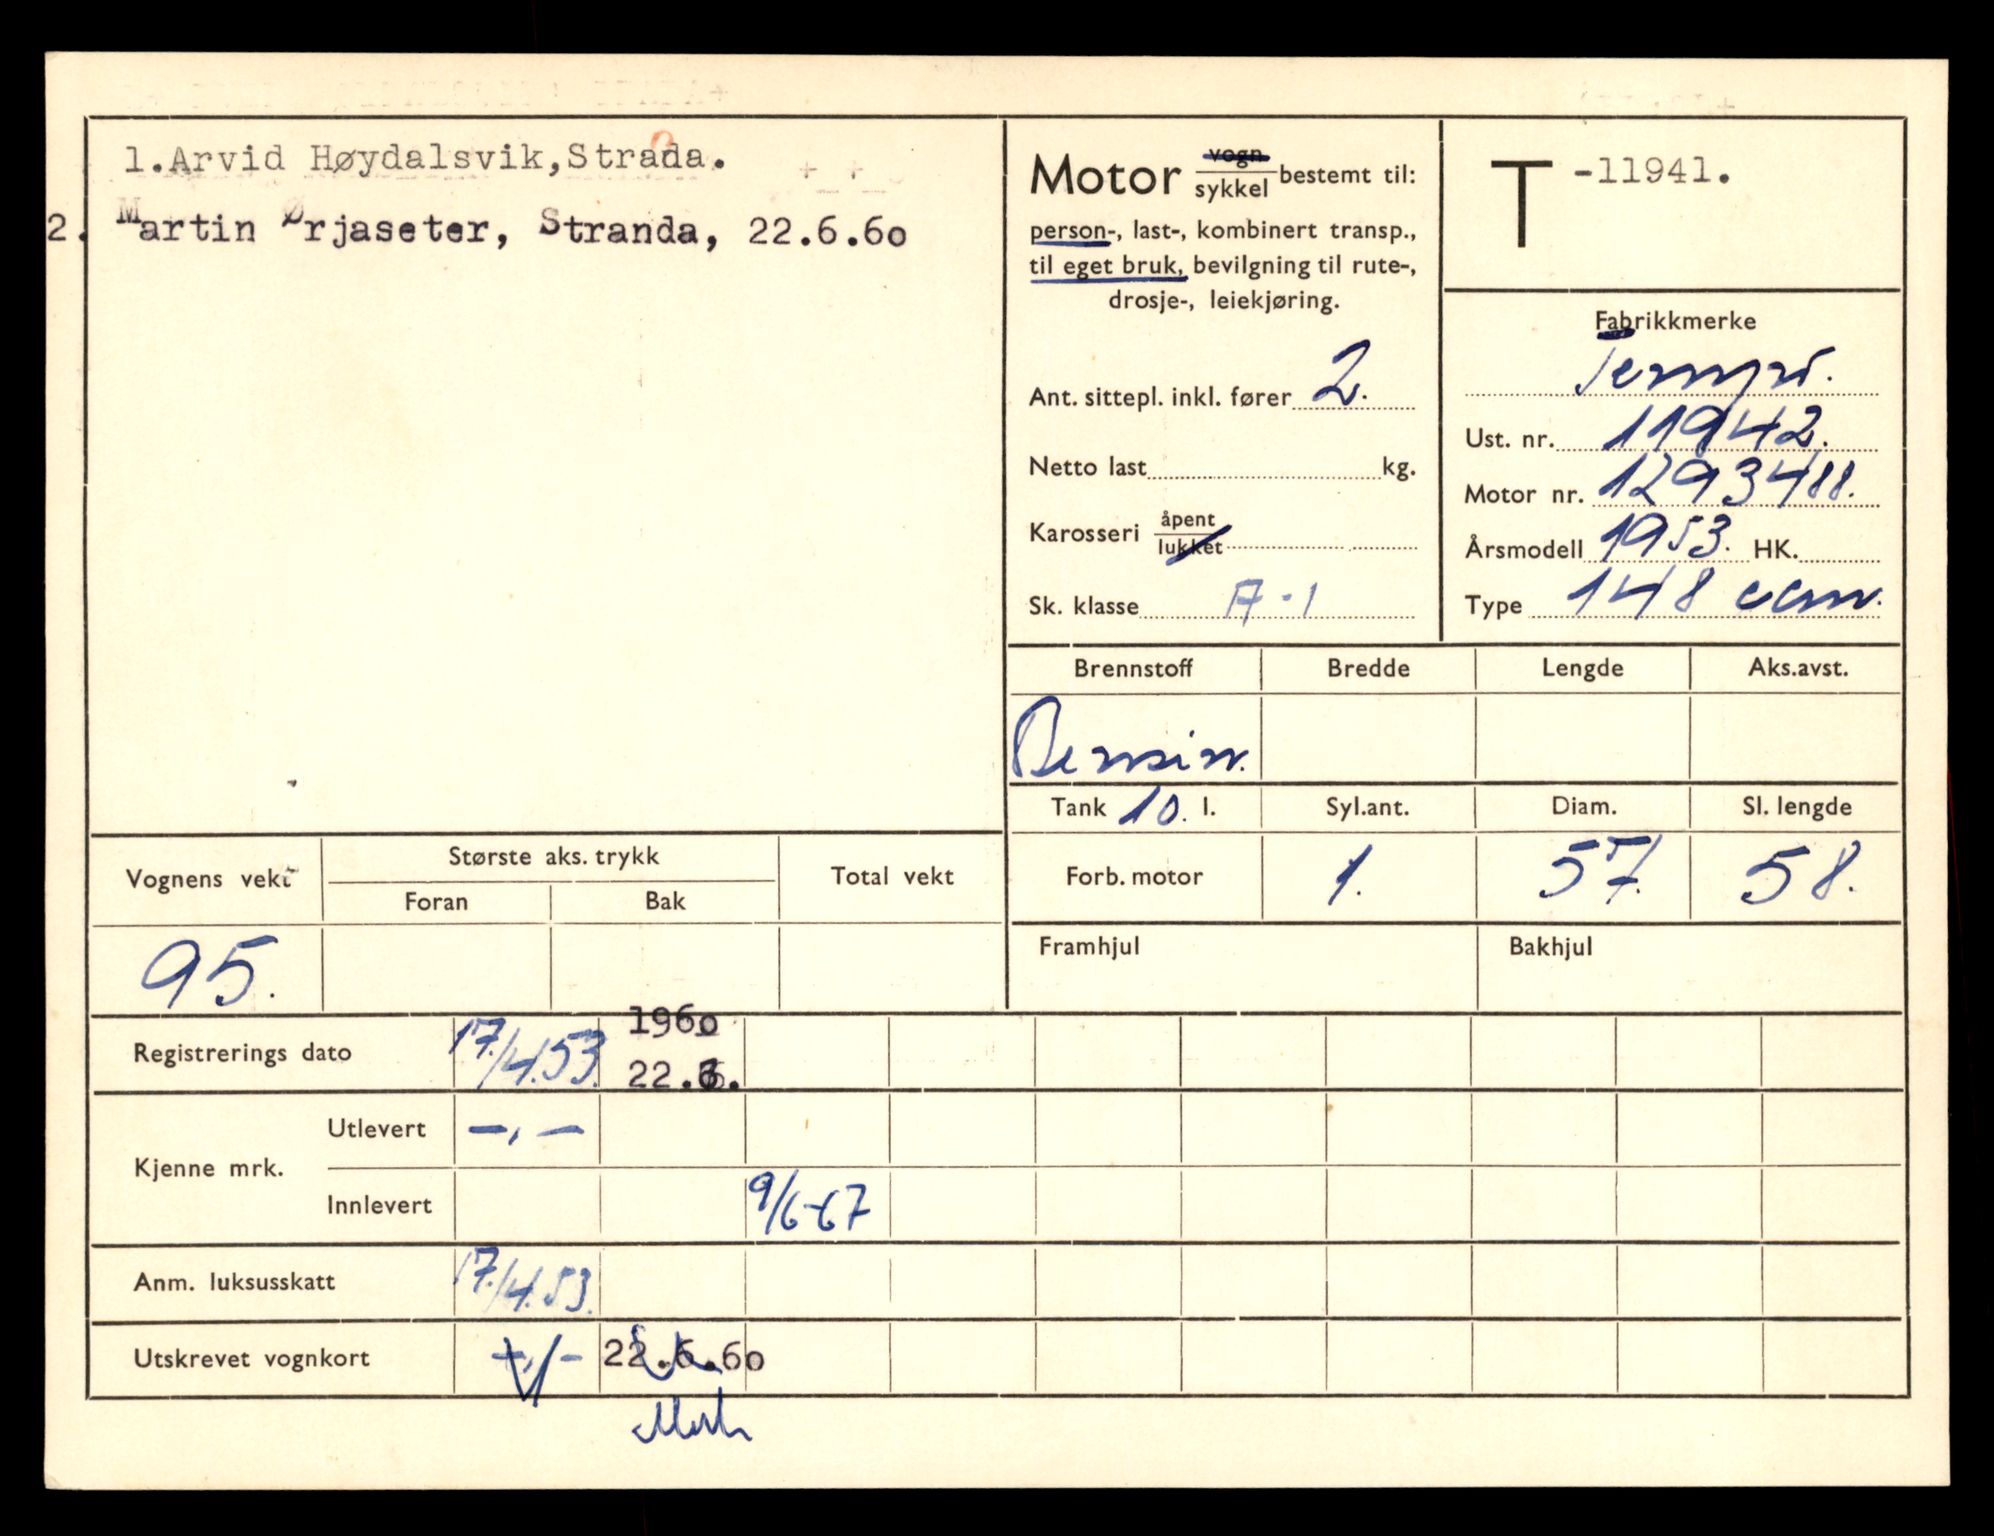 1.Arvid Høydalsvik,Strada.
2. Martin Ørjaseter, Stranda, 22.6.60
Motor vogn/sykkel bestemt til:
person-, last-, kombinert transp.,
til eget bruk, bevilgning til rute-,
drosje-, leiekjøring.
Ant. sittepl. inkl. fører 2.
Netto last kg.
Karosseri åpent/lukket
Sk. klasse A-1
T -11941.
Fabrikkmerke
Tempo.
Ust. nr. 11942.
Motor nr. 1293488.
Årsmodell 1953. HK.
Type 148 ccm.
Brennstoff Bredde Lengde Aks.avst.
Bensin.
Tank 10. l. Syl.ant. Diam. Sl. lengde
Forb. motor 1. 57. 58.
Framhjul Bakhjul
Vognens vekt Største aks. trykk Total vekt
Foran Bak
95.
Registrerings dato 17./4.53. 1960 22.6.
Kjenne mrk. Utlevert —„—
Innlevert 9/6-67
Anm. luksusskatt 17./4.53.
Utskrevet vognkort —„— 22.6.60